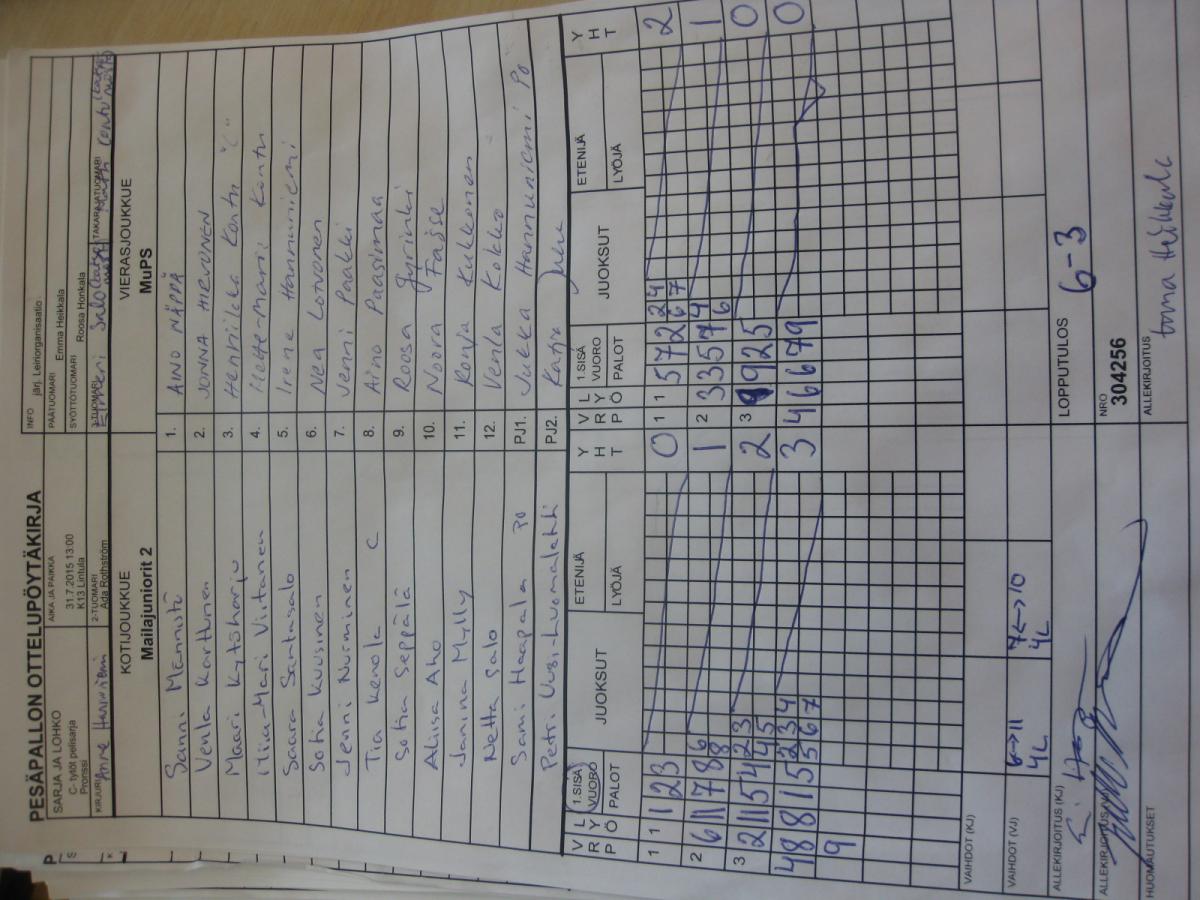 PESÄPALLON OTTELUPÖYTÄKIRJA
SARJA JA LOHKO
C- tytöt pelisarja
Pronssi
AIKA JA PAIKKA
31.7.2015 13:00
K13 Lintula
INFO järj. Leiriorganisaatio
PÄÄTUOMARI Emma Heikkala
SYÖTTÖTUOMARI Roosa Honkala
KIRJURI Anne Hanniemi
2-TUOMARI
Ada Rothström
3-TUOMARI
TAKARAJATUOMARI
KOTIJOUKKUE
Mailajuniorit 2
VIERASJOUKKUE
MuPS
Sanni Mannistö 1. AINO NÄPPÄ
Venla Karttunen 2. JONNA HIEVONEN
Maari Kytöharju 3. Henriikka Kontu "C"
Miia-Mari Viitanen 4. Mette-Mari Kontu
Saara Santasalo 5. Irene Hannuniemi
Sofia Kuusinen 6. Nea Lotvonen
Jenni Nurminen 7. Venni Paakki
Tia Kenola C 8. Aino Paasimaa
Sofia Seppälä 9. Roosa Jyrinki
Aliisa Aho 10. Noora
Janina Mylly 11. Ronja Kukkonen
Netta Salo 12. Venla Kokko
Sami Haapala PO PJ1. Jukka Hannuniemi PO
Petri Uusi-Luomalahti PJ2. Katja
V R P L Y Ö 1.SISÄ VUORO PALOT JUOKSUT ETENIJÄ LYÖJÄ Y H T V R P L Y Ö 1.SISÄ VUORO PALOT JUOKSUT ETENIJÄ LYÖJÄ Y H T
1 1 1 2 3 0 1 1 5 7 2 2 4 6 7 2
2 6 11 7 8 6 8 8 1 2 3 3 5 7 4 1
3 2 11 5 4 2 3 4 5 2 3 9 2 5 6 0
4 8 8 1 5 2 3 4 5 6 7 3 4 6 6 7 9 0
9
VAIHDOT (KJ)
VAIHDOT (VJ) 6↔11 4L 7↔10 4L
ALLEKIRJOITUS (KJ)
LOPPUTULOS 6-3
ALLEKIRJOITUS (VJ)
NRO
304256
HUOMAUTUKSET
ALLEKIRJOITUS
Emma Heikkala